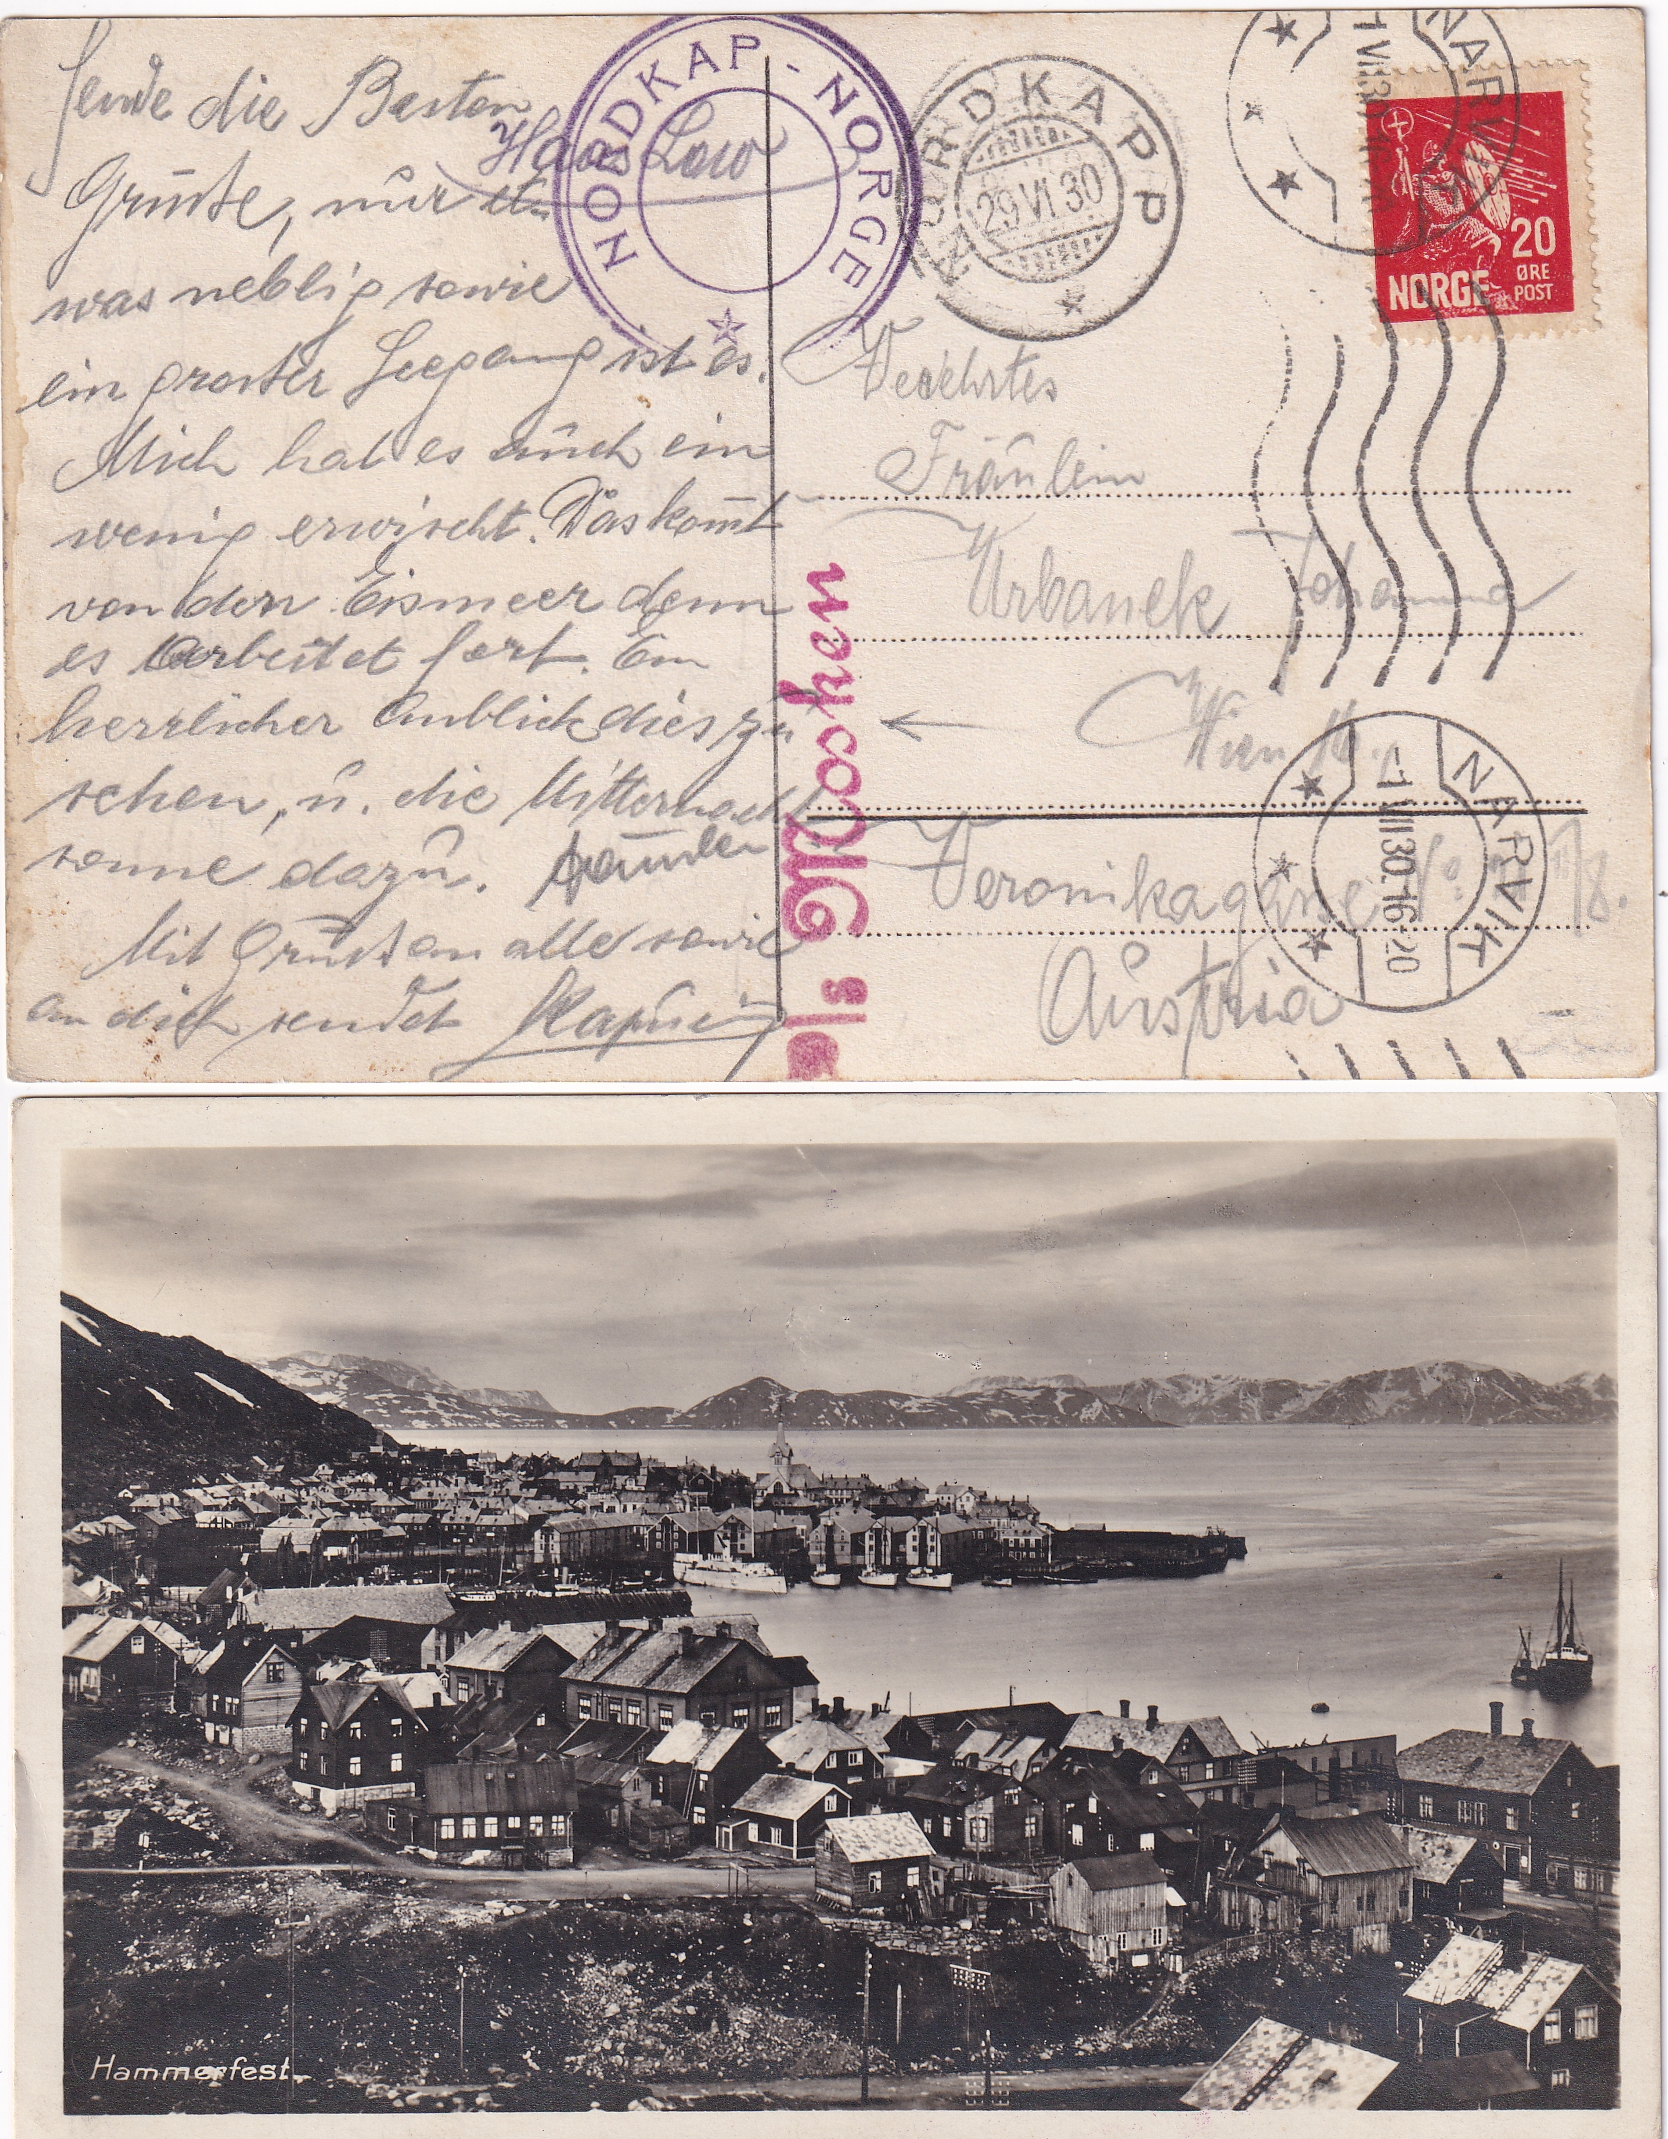 Sende die Besten
Grüsse, nur et
was neblig sowie
ein grosser Seegang ist es.
Mich hat es auch ein
wenig erwischt. Das kom̄t
von dem Eismeer denn
es arbeitet fort. Ein
herrlicher Anblick dies zu
sehen, u. die Mitternacht
sonne dazu.
Mit Grüssen an alle sowie
an dich sendet
Hans
NORDKAP - NORGE
NORDKAPP
29 VI 30
NARVIK
20
ØRE
NORGE POST
Verehrtes
Fräulein
Urbanek Johanna
Wien
Veronikagasse No
Austria
NARVIK
-1 VII 30.-16-20
Hammerfest.